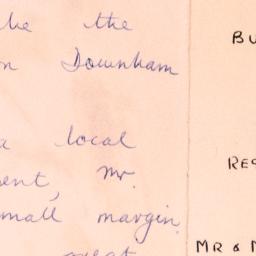 the
Downham
local
Mr.
small margin.
great
BU
RES
MR & M